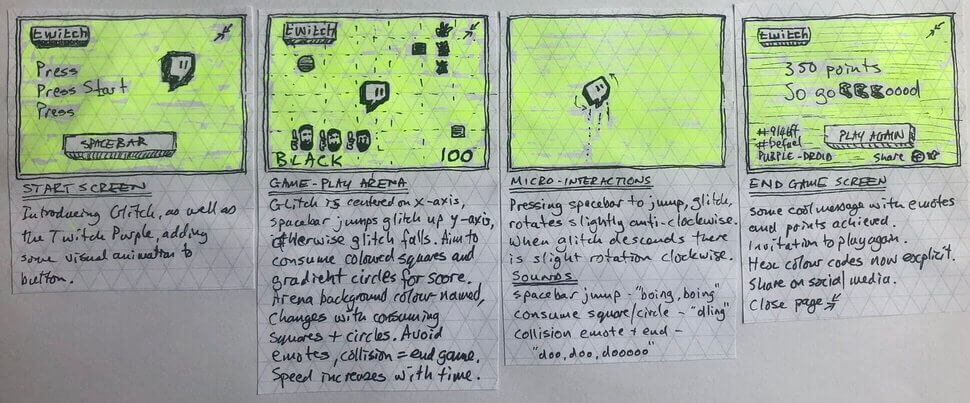 twitch
Press
Press Start
Press
SPACEBAR
START SCREEN
Introducing Glitch, as well as
the Twitch Purple, adding
some visual animation to
button.
twitch
BLACK
100
GAME-PLAY ARENA
Glitch is centered on x-axis,
spacebar jumps glitch up y-axis,
otherwise glitch falls. Aim to
consume coloured squares and
gradient circles for score.
Arena background colour named,
changes with consuming
squares + circles. Avoid
emotes, collision = end game.
Speed increases with time.
MICRO-INTERACTIONS
Pressing spacebar to jump, glitch,
rotates slightly anti-clockwise.
When glitch descends there
is slight rotation clockwise.
SOUNDS
spacebar jump - "boing, boing"
consume square/circle - "dling"
collision emote + end -
"doo, doo, dooooo"
twitch
350 points
So go oood
PLAY AGAIN
PURPLE-DROID
Share
END GAME SCREEN
some cool message with emotes
and points achieved.
Invitation to play again.
Hex colour codes now explicit.
Share on social media.
Close page